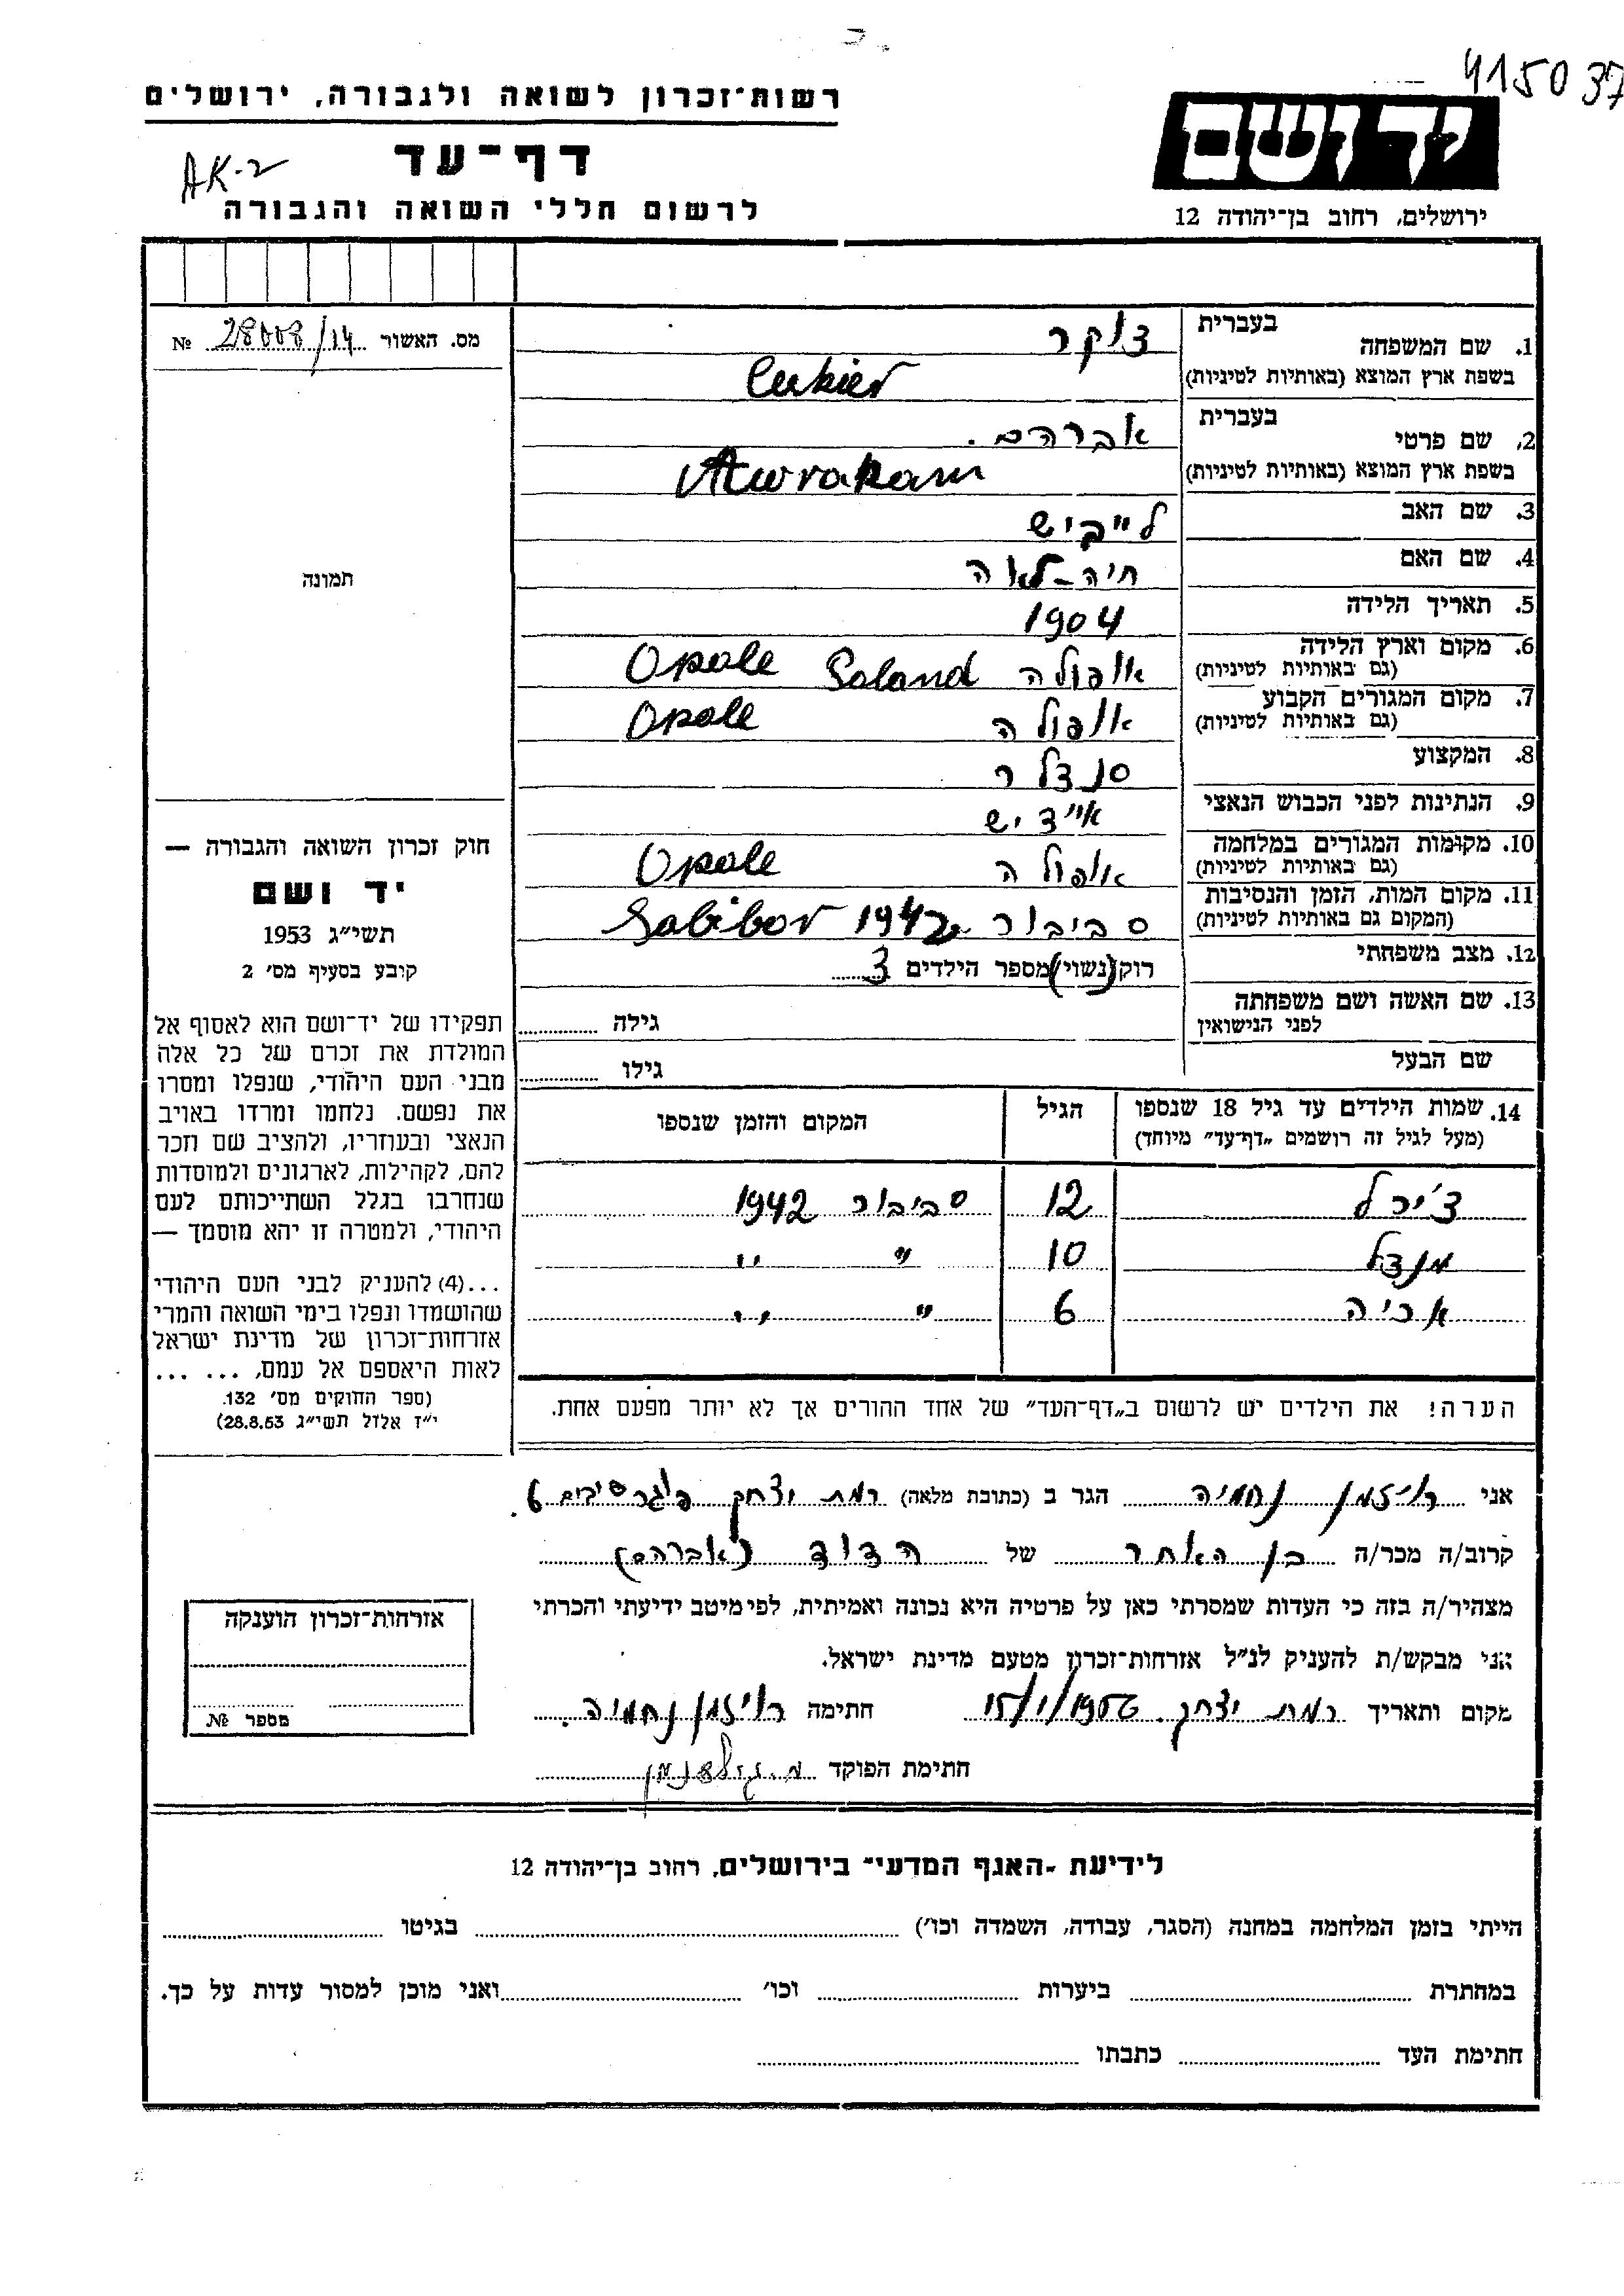 415037
רשות־זכרון לשואה ולגבורה, ירושלים
ידושם
דף־עד
AK-2
לרשום חללי השואה והגבורה
ירושלים, רחוב בן־יהודה 12
מס. האשור 28008/14 №
1. שם המשפחה בעברית צוקר
בשפת ארץ המוצא (באותיות לטיניות) Cukier
2. שם פרטי בעברית אברהם.
בשפת ארץ המוצא (באותיות לטיניות) Awraham
3. שם האב לייביש
4. שם האם חיה-לאה
5. תאריך הלידה 1904
6. מקום וארץ הלידה (גם באותיות לטיניות) אופולה Poland Opole
7. מקום המגורים הקבוע (גם באותיות לטיניות) אופולה Opole
8. המקצוע סנדלר
9. הנתינות לפני הכבוש הנאצי אידיש
10. מקומות המגורים במלחמה (גם באותיות לטיניות) אופולה Opole
11. מקום המות, הזמן והנסיבות (המקום גם באותיות לטיניות) סביבור 1942 Sabibor
12. מצב משפחתי רוק (נשוי) מספר הילדים 3
13. שם האשה ושם משפחתה לפני הנישואין גילה
שם הבעל גילו
תמונה
חוק זכרון השואה והגבורה —
יד ושם
תשי״ג 1953
קובע בסעיף מס׳ 2
תפקידו של יד־ושם הוא לאסוף אל
המולדת את זכרם של כל אלה
מבני העם היהודי, שנפלו ומסרו
את נפשם. נלחמו ומרדו באויב
הנאצי ובעוזריו, ולהציב שם וזכר
להם, לקהילות, לארגונים ולמוסדות
שנחרבו בגלל השתייכותם לעם
היהודי, ולמטרה זו יהא מוסמך —
...(4) להעניק לבני העם היהודי
שהושמדו ונפלו בימי השואה והמרי
אזרחות־זכרון של מדינת ישראל
לאות היאספם אל עמם, ... ...
(ספר החוקים מס׳ 132.
י״ז אלול תשי״ג 28.8.53)
14. שמות הילדים עד גיל 18 שנספו הגיל המקום והזמן שנספו
(מעל לגיל זה רושמים „דף־עד״ מיוחד)
צ׳ירל 12 סביבור 1942
מנדל 10 " "
אריה 6 " "
הערה! את הילדים יש לרשום ב„דף־העד״ של אחד ההורים אך לא יותר מפעם אחת.
אני רויזמן נחמיה הגר ב (כתובת מלאה) רמת יצחק 6
קרוב/ה מכר/ה בן האחר של הדוד (אברהם)
מצהיר/ה בזה כי העדות שמסרתי כאן על פרטיה היא נכונה ואמיתית, לפי מיטב ידיעתי והכרתי
אני מבקש/ת להעניק לנ״ל אזרחות־זכרון מטעם מדינת ישראל.
מקום ותאריך רמת יצחק. 15/1/1956 חתימה רויזמן נחמיה.
חתימת הפוקד
אזרחות־זכרון הוענקה
מספר №
לידיעת -האגף המדעי־ בירושלים, רחוב בן־יהודה 12
הייתי בזמן המלחמה במחנה (הסגר, עבודה, השמדה וכו׳) בגיטו
במחתרת ביערות וכו׳ ואני מוכן למסור עדות על כך.
חתימת העד כתבתו